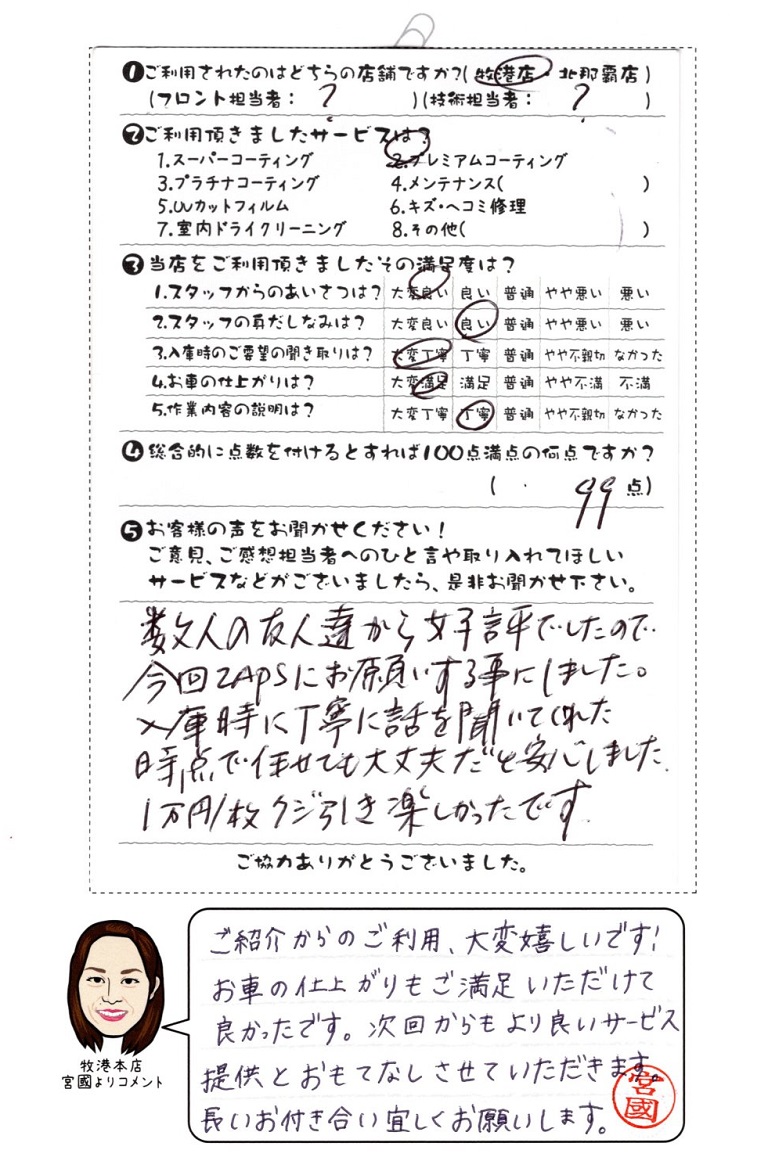 ❶ご利用されたのはどちらの店舗ですか?( 牧港店・北那覇店 )
(フロント担当者: ? )(技術担当者: ? )
❷ご利用頂きましたサービスは?
1.スーパーコーティング 2.プレミアムコーティング
3.プラチナコーティング 4.メンテナンス( )
5.UVカットフィルム 6.キズ・ヘコミ修理
7.室内ドライクリーニング 8.その他( )
❸当店をご利用頂きましたその満足度は?
1.スタッフからのあいさつは? 大変良い 良い 普通 やや悪い 悪い
2.スタッフの身だしなみは? 大変良い 良い 普通 やや悪い 悪い
3.入庫時のご要望の聞き取りは? 大変丁寧 丁寧 普通 やや不親切 なかった
4.お車の仕上がりは? 大変満足 満足 普通 やや不満 不満
5.作業内容の説明は? 大変丁寧 丁寧 普通 やや不親切 なかった
❹総合的に点数を付けるとすれば100点満点の何点ですか?
( 99 点)
❺お客様の声をお聞かせください!
ご意見、ご感想担当者へのひと言や取り入れてほしい
サービスなどがございましたら、是非お聞かせ下さい。
数人の友人達から好評でしたので
今回ZAPSにお願いする事にしました。
入庫時に丁寧に話を聞いてくれた
時点で任せても大丈夫だと安心しました。
1万円/枚クジ引き楽しかったです
ご協力ありがとうございました。
ご紹介からのご利用、大変嬉しいです!
お車の仕上がりもご満足いただけて
良かったです。次回からもより良いサービス
提供とおもてなしさせていただきます。
長いお付き合い宜しくお願いします。
宮國
牧港本店
宮國よりコメント